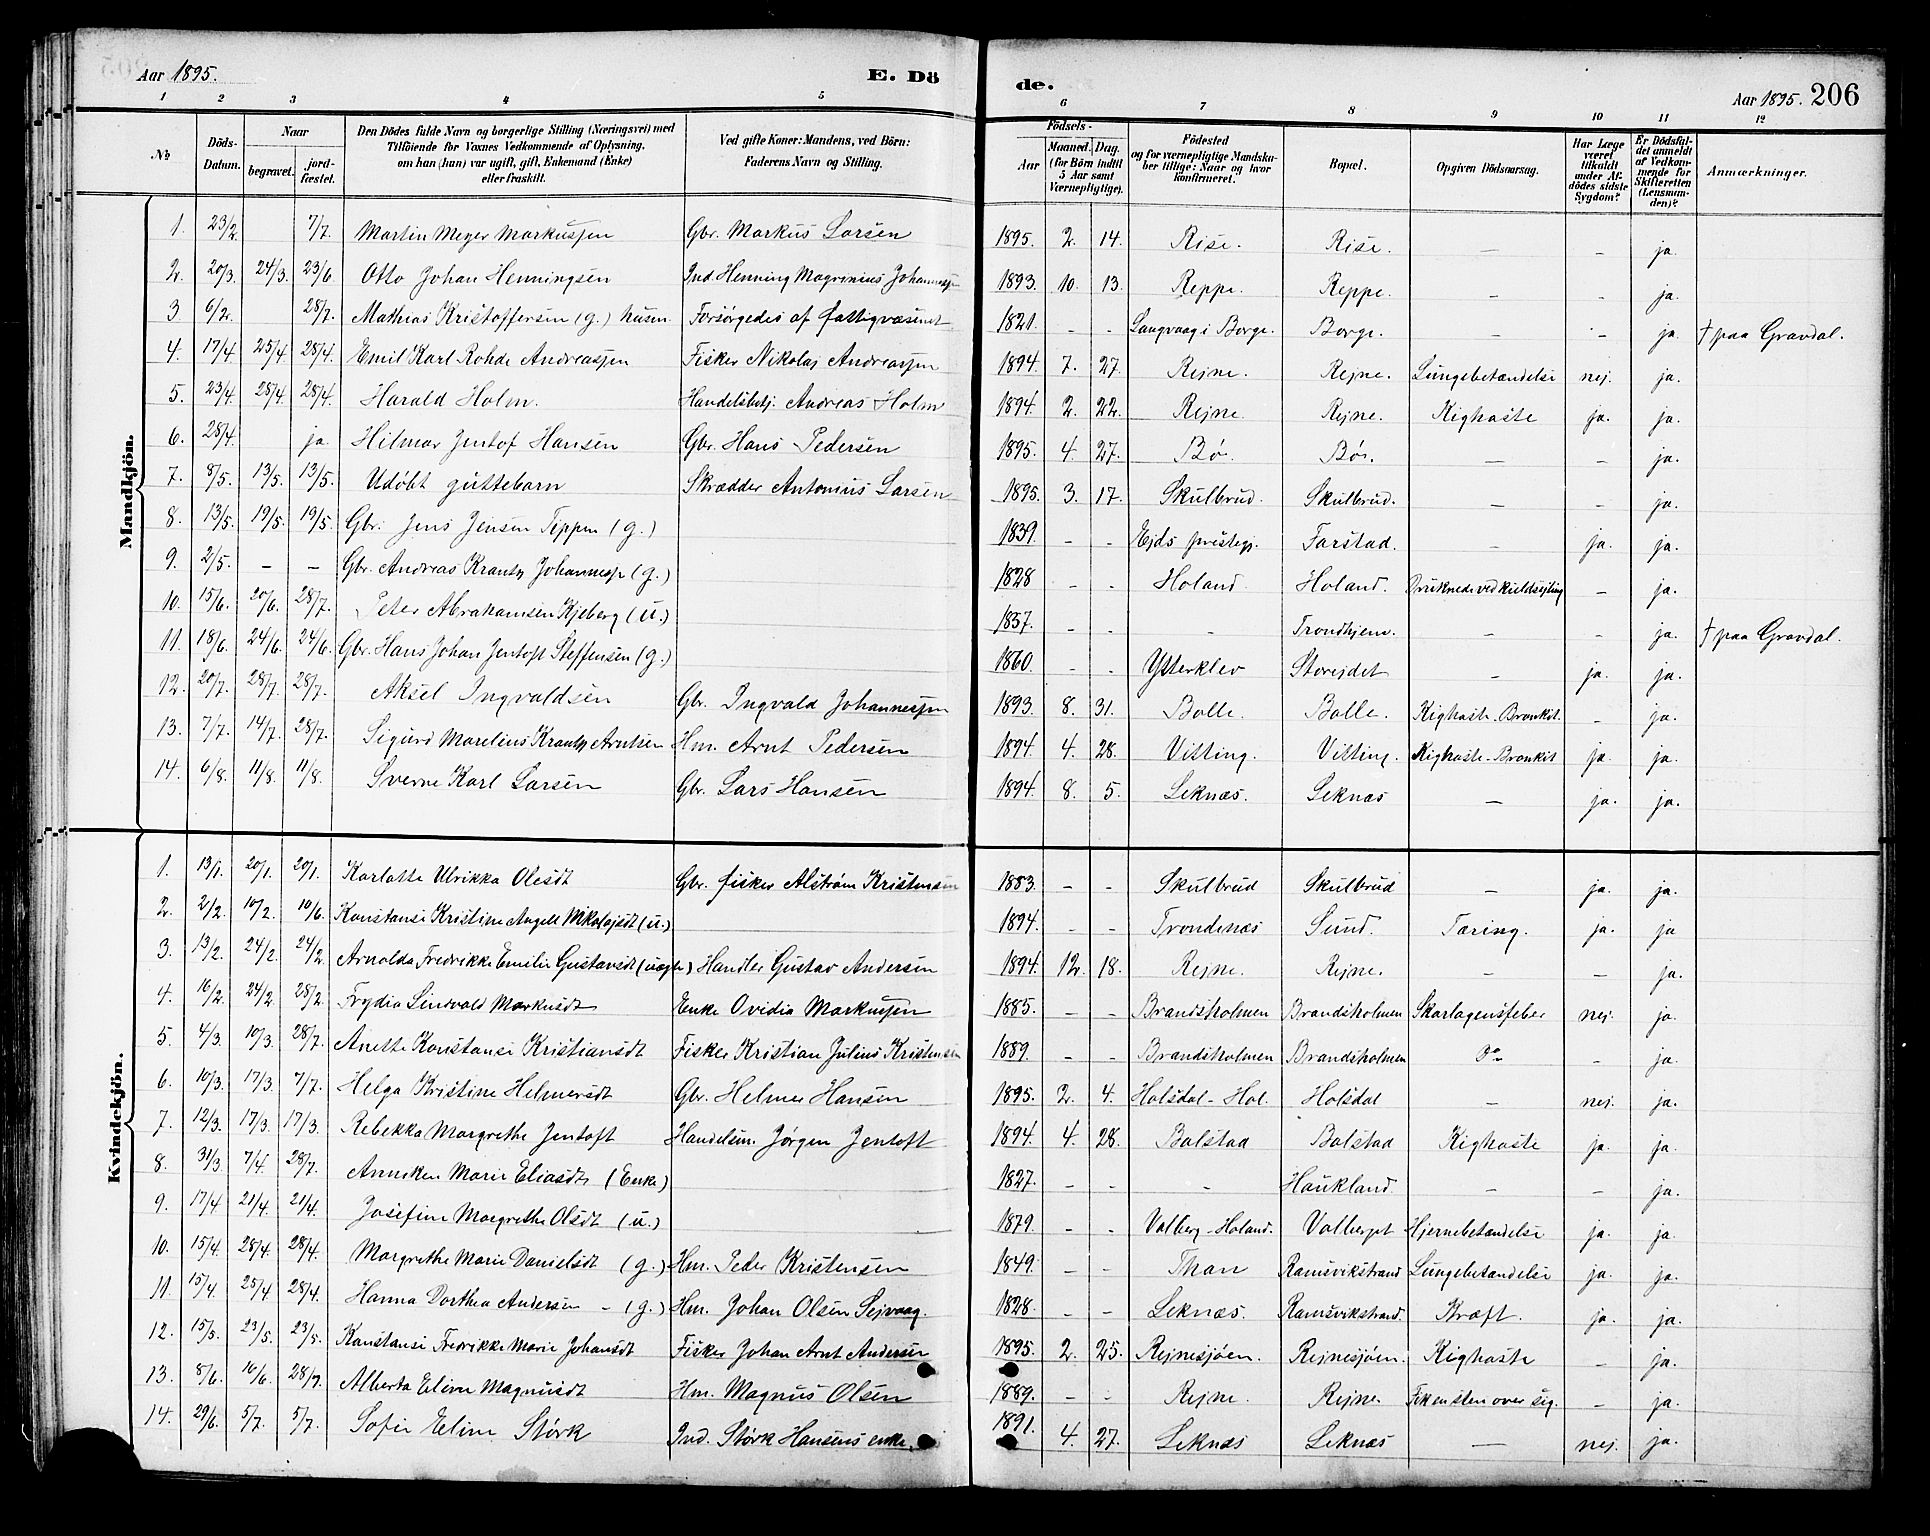 Aar 1895. E. Dö de. Aar 1895. 206
1 2 3 4 5 6 7 8 9 10 11 12
No. Döds-Datum. Naar begravet. jordfæstet. Den Dödes fulde Navn og borgerlige Stilling (Næringsvei) med Tilföiende for Voxnes Vedkommende af Oplysning, om han (hun) var ugift, gift, Enkemand (Enke) eller fraskilt. Ved gifte Koner: Mandens, ved Börn: Faderens Navn og Stilling. Födsels- Aar Maaned. Dag. (for Börn indtil 5 Aar samt Værnepligtige). Födested og for værnepligtige Mandskaber tillige: Naar og hvor konfirmeret. Bopæl. Opgiven Dödsaarsag. Har Læge været tilkaldt under Afdödes sidste Sygdom? Er Dödsfaldet anmeldt af Vedkommende for Skifteretten (Lensmanden)? Anmærkninger.
Mandkjön.
1. 23/2. 7/7. Martin Meyer Markussen Gbr. Markus Larsen 1895. 2. 14. Rise. Rise. — — ja.
2. 20/3. 24/3. 23/6 Otto Johan Henningsen Ind. Henning Magrenius Johannessen 1893. 10. 13. Reppe. Reppe. — - ja.
3 6/2. 28/7. Mathias Kristoffersen (g.) husm. Forsörgedes af fattigvæsenet 1821. - - Langvaag i Borge. Borge. — - ja. † paa Gravdal.
4. 17/4 25/4. 28/4. Emil Karl Rohde Andreassen Fisker Nikolai Andreassen 1894. 7. 27. Rejne. Rejne. Lungebetændelse nej. ja.
5. 23/4. 28/4. 28/4. Harald Holm. Handelsbetj. Andreas Holm 1894. 2. 22. Rejne. Rejne. Kighoste ja. ja.
6. 28/4. ja. Hilmar Jentof Hansen Gbr. Hans Pedersen 1895. 4. 27. Bö. Bö. — - ja.
7. 8/5. 13/5. 13/5. Udöbt guttebarn Skrædder Antonius Larsen 1895. 3. 17. Skulbrud. Skulbrud. — - ja.
8. 13/5. 19/5. 19/5. Gbr. Jens Jensen Teppen (g.) 1839. - - Ejds prestegj. Farstad. — ja. ja.
9. 2/5. — — Gbr. Andreas Krantz Johanness. (g.) 1828 - - Holand. Holand. Druknede ved kuldsejling - ja.
10. 15/6. 20/6. 28/7. Peter Abrahamsen Kjeberg (u.) 1837. - - - Trondhjem. — — ja. † paa Gravdal.
11. 18/6. 24/6. 24/6. Gbr. Hans Johan Jentoft Steffensen (g.) 1860. - - Ytterklev Storejdet — ja. ja.
12. 20/7. 28/7. 28/7. Aksel Ingvaldsen Gbr. Ingvald Johannessen 1893. 8. 31. Bolle. Bolle. Kighoste. Bronkit. - ja.
13. 7/7. 14/7. 28/7. Sigurd Marelius Krantz Arntsen Hm. Arnt Pedersen 1894. 4. 28. Vitting. Vitting. Kighoste - Bronkit ja. ja.
14. 6/8. 11/8. 11/8. Sverre Karl Larsen Gbr. Lars Hansen 1894. 8. 5. Leknæs. Leknæs — ja. ja.
Kvindekjön.
1. 13/1. 20/1. 20/1. Karlotte Ulrikka Olesdt Gbr. fisker Alström Kristensen 1883. - - Skulbrud Skulbrud — ja. ja.
2. 2/2. 10/2. 10/6. Konstanse Kristine Angell Nikolajsdt (u.) 1894. - - Trondenæs Sund. Tæring. ja. ja
3. 13/2. 24/2. 24/2. Arnolda Fredrikke Emilie Gustavsdt (uægte) Handler Gustav Andersen 1894. 12. 18. Rejne. Rejne. — — ja.
4. 16/2. 24/2. 28/2. Frydia Lindvald Markusdt Enke Ovidia Markussen 1885. - - Brandsholmen Brandsholmen Skarlagensfeber nej. ja.
5. 4/3. 10/3. 28/7. Anette Konstanse Kristiansdt Fisker Kristian Julius Kristensen 1889. - - Brandsholmen Brandsholmen Do - ja.
6. 10/3. 17/3. 7/7. Helga Kristine Helmersdt Gbr. Helmer Hansen 1895. 2. 4. Holsdal - Hol. Holsdal — nej. ja.
7. 12/3. 17/3. 17/3. Rebekka Margrethe Jentoft Handelsm. Jörgen Jentoft 1894. 4. 28. Balstad Balstad Kighoste ja. ja.
8. 31/3. 7/4. 28/7. Anniken Marie Eliasdt (Enke) 1827. - - - Haukland. — - ja.
9. 17/4 21/4. 21/4. Josefine Margrethe Olsdt (u.) 1879. - - Valberg - Holand. Valberget Hjernebetændelse ja. ja.
10. 15/4. 28/4. 28/4. Margrethe Marie Danielsdt (g.) Hm. Peder Kristensen 1849. - - Than Ramsvikstrand Lungebetændelse ja. ja.
11. 15/4. 25/4. 28/4. Hanna Dorthea Andersen - (g.) Hm. Johan Olsen Sejvaag. 1828. - - Leknæs. Ramsvikstrand. Kræft. ja. ja.
12. 15/5. 23/5. 23/5. Konstanse Fredrikke Marie Johansdt Fisker Johan Arnt Andersen 1895. 2. 25. Rejnesjöen. Rejnesjöen. Kighoste - ja.
13. 8/6. 16/6. 28/7. Alberta Eline Magnusdt Hm. Magnus Olsen 1889. - - Rejne. Rejne. Fik en sten over sig. - ja.
14. 29/6. 5/7. 5/7. Sofie Eline Störk Ind. Störk Hansens enke. 1891. 4. 27. Leknæs Leknæs — nej. ja.